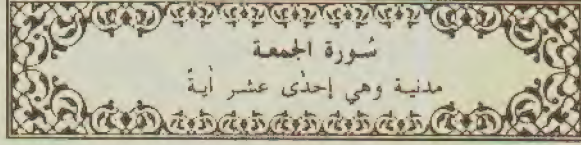 سُورة الجمعة
مدنية وهي إحدٰى عشر أيةً